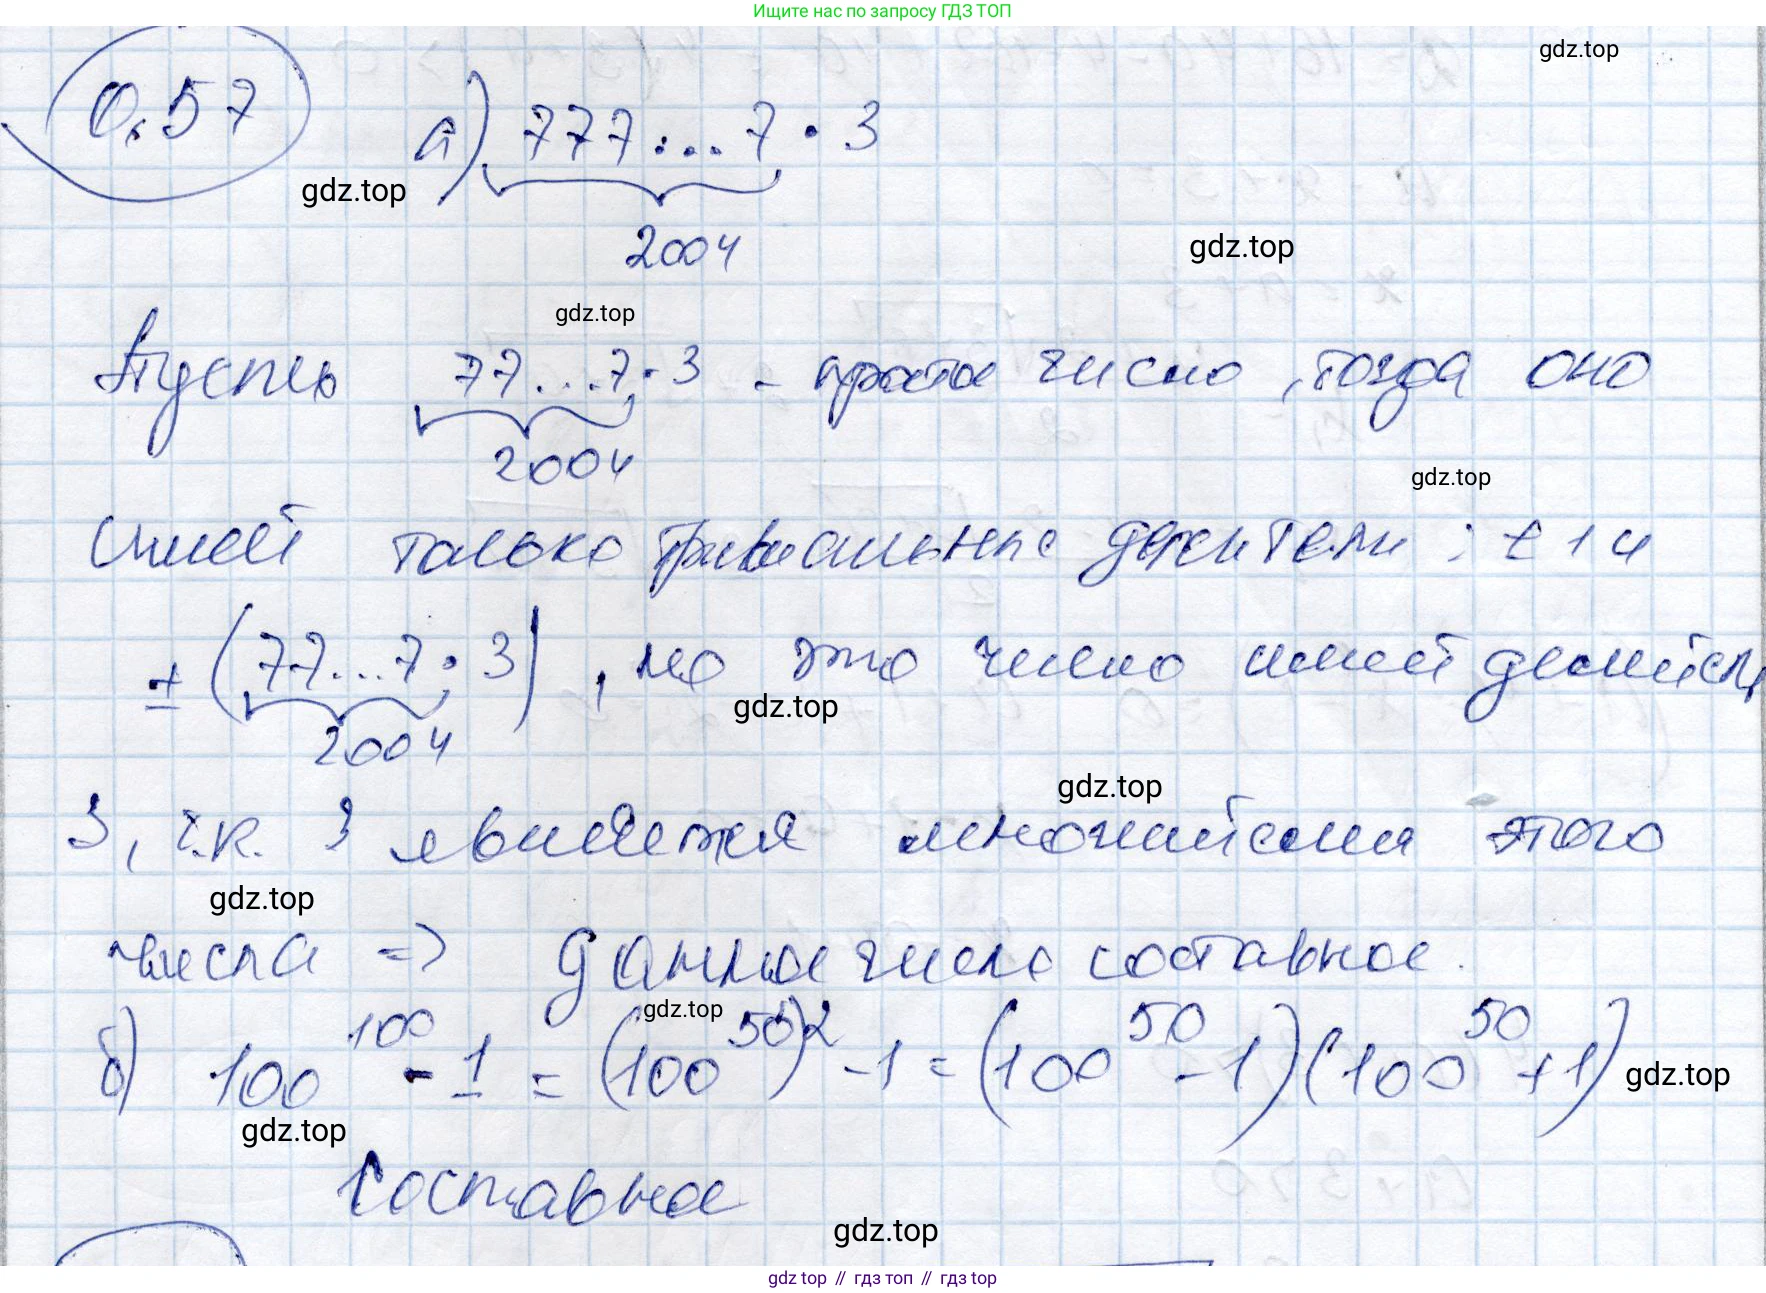 Ищите нас по запросу ГДЗ ТОП
gdz.top
0.57 а) 777...7 · 3
gdz.top
2004
gdz.top
gdz.top
Пусть 77...7 · 3 - простое число, тогда оно
2004
gdz.top
имеет только тривиальные делители : ± 1 и
± (77...7 · 3), но это число имеет делитель
2004
gdz.top
gdz.top
3, т.к. 3 является множителем этого
gdz.top
числа => данное число составное.
gdz.top
б) 100^100 - 1 = (100^50)^2 - 1 = (100^50 - 1)(100^50 + 1)
gdz.top
gdz.top
Составное
gdz.top
gdz top // гдз топ // гдз top